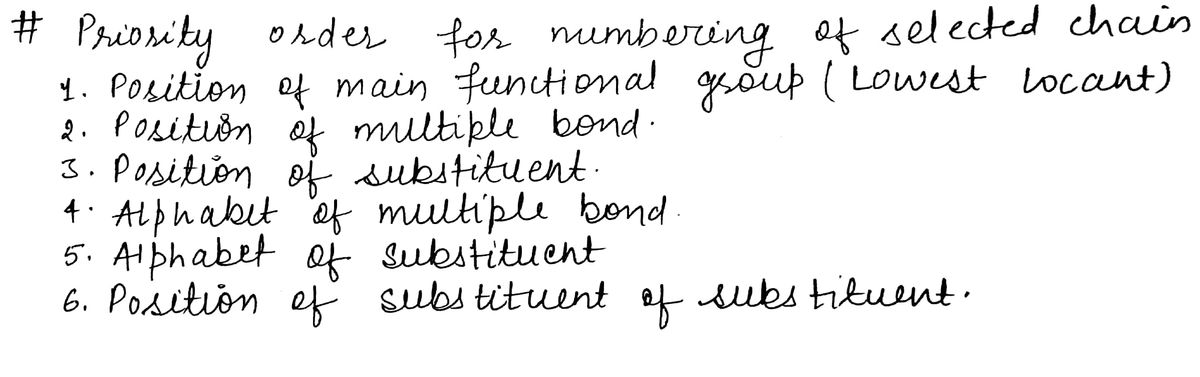 # Priority order for numbering of selected chain
1. Position of main functional group (Lowest locant)
2. Position of multiple bond.
3. Position of substituent.
4. Alphabet of multiple bond.
5. Alphabet of substituent
6. Position of substituent of substituent.